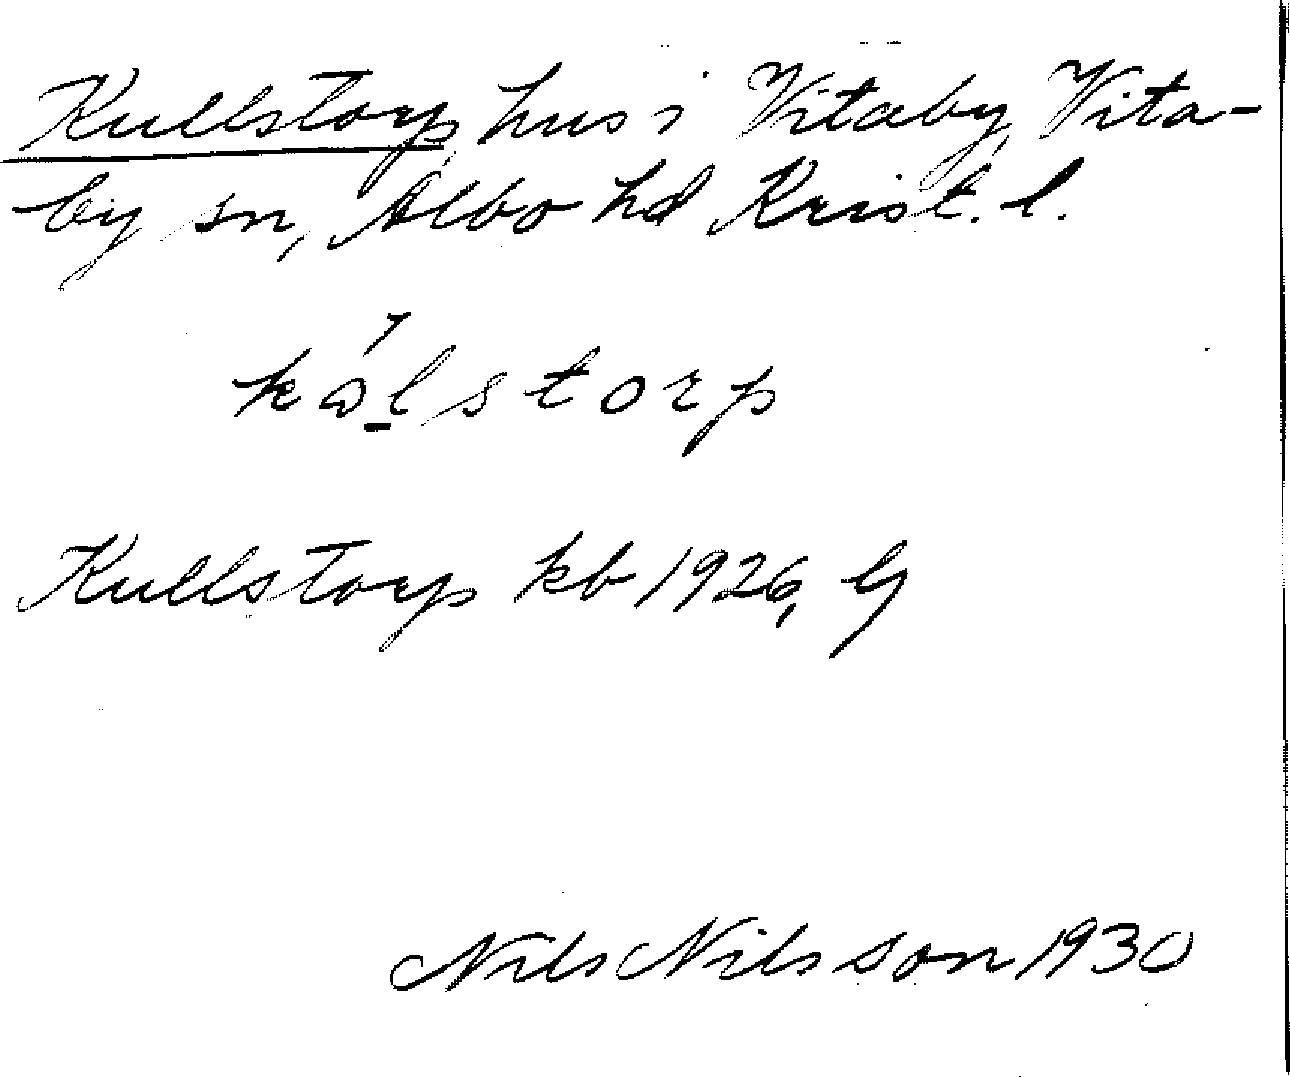 Kullstorp hus i Vitaby, Vita-
by sn, Albo hd Krist. l.
kålstorp
Kullstorp kb 1926,
Nils Nilsson 1930